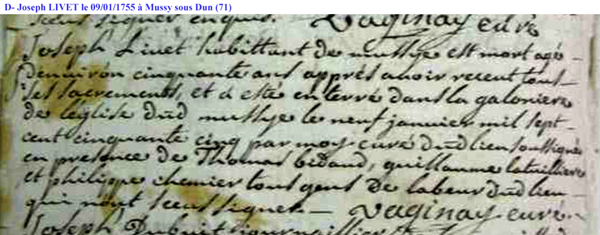 D- Joseph LIVET le 09/01/1755 à Mussy sous Dun (71)
Vaginay curé
Joseph Livet habittant de mussye est mort agé
denuiron cinquante ans apprés auoir receut tous
les sacrements, et a este enterré dans la galoniere
de léglise dud mussye le neuf januier mil sept
cent cinquante cinq par moy curé dud lieu soussigné
en presence de Thomas bidaud, guillaume latuilliere
et philippe chemier tous gens de labeur dud lieu
qui nont sceu signer Vaginay curé
Joseph